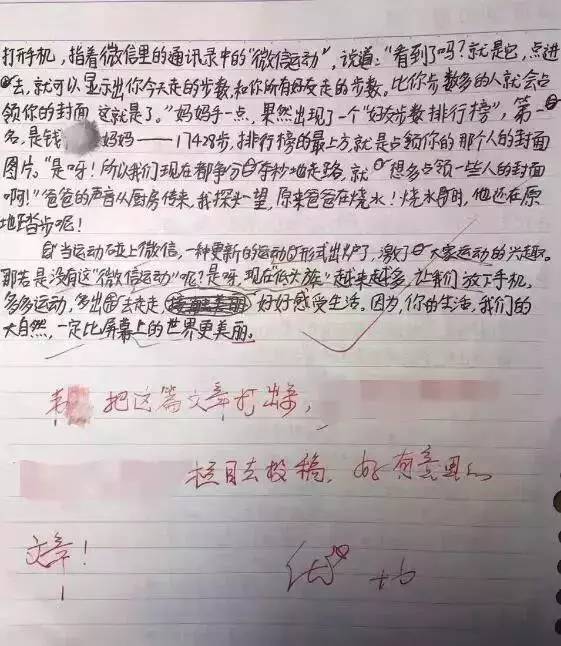 打开手机，指着微信里的通讯录中的“微信运动”，说道：“看到了吗？就是它，点进
去，就可以显示出你今天走的步数和你所有好友走的步数。比你步数多的人就会占
领你的封面，这就是了。”妈妈手一点，果然出现了一个“好友步数排行榜”，第一
名，是钱妈妈——17428步，排行榜的最上方就是占领你的那个人的封面
图片。“是呀！所以我们现在都争分夺秒地走路，就想多占领一些人的封面
啊！”爸爸的声音从厨房传来，我探头一望，原来爸爸在烧水！烧水时，他还在原
地踏步呢！
当运动碰上微信，一种更新的运动形式出炉了，激了大家运动的兴趣。
那若是没有这“微信运动”呢？是呀，现在“低头族”越来越多，让我们放下手机，
多多运动，多出去走走，好好感受生活。因为，你的生活，我们的
大自然，一定比屏幕上的世界更美丽。
把这篇文章打出来，
栏目去投稿，好有意思的
文章！
优 ++